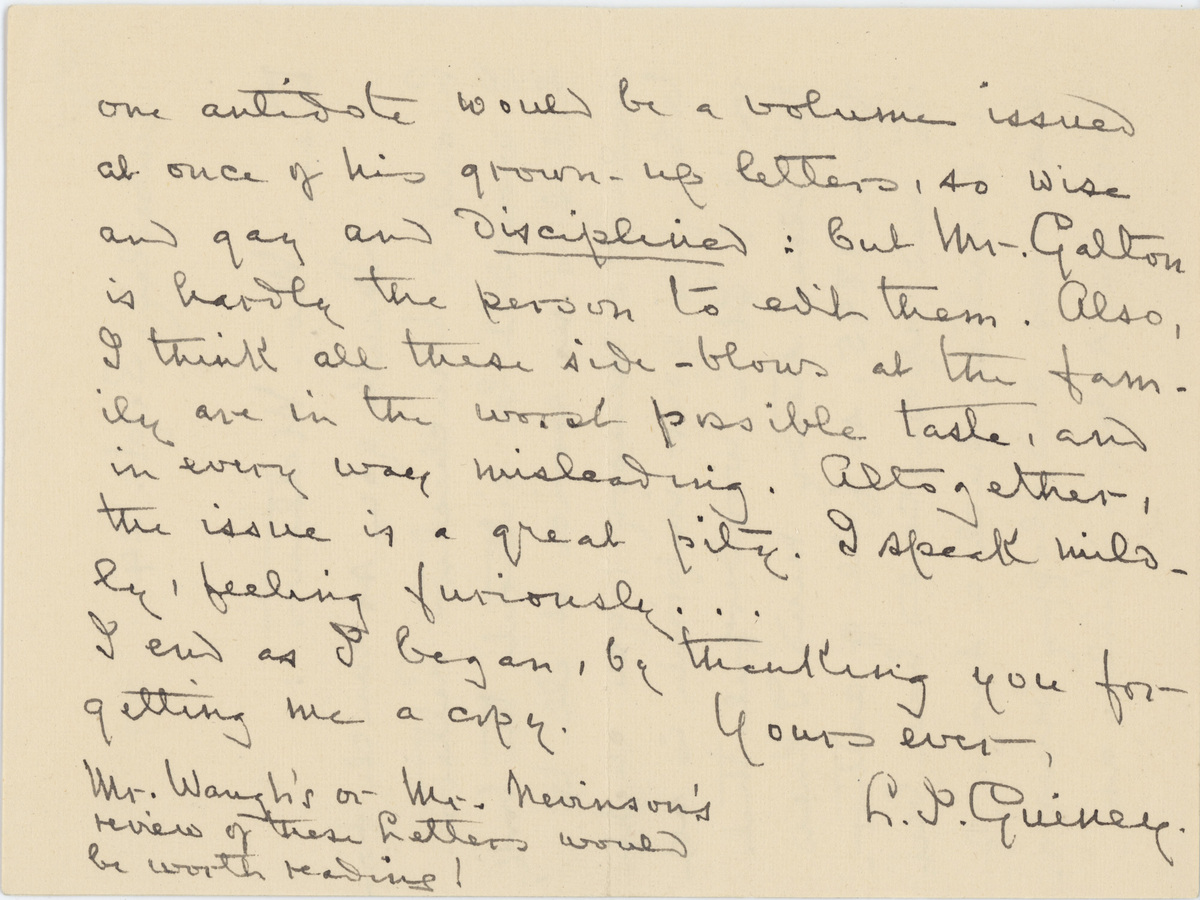 one antidote would be a volume issued
at once of his grown-up letters, so wise
and gay and disciplined : but Mr. Galton
is hardly the person to edit them. Also,
I think all these side-blows at the fam-
ily are in the worst possible taste, and
in every way misleading. Altogether,
the issue is a great pity. I speak mild-
ly, feeling furiously. . .
I end as I began, by thanking you for
getting me a copy. Yours ever,
L. I. Guiney.
Mr. Waugh's or Mr. Nevinson's
review of these Letters would
be worth reading!